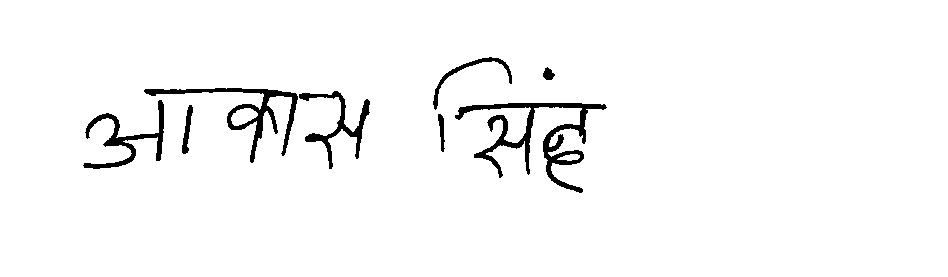 आकास सिंह